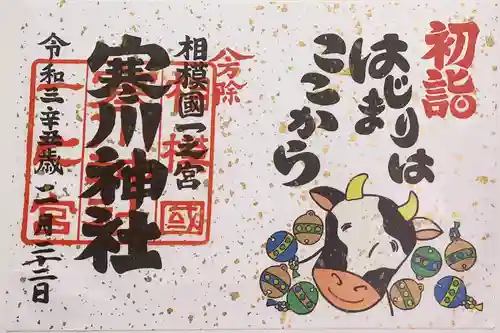 初詣
はじまりは
ここから
八方除
相模國一之宮
寒川神社
令和三辛丑歳 二月二十二日
相模國
一之宮